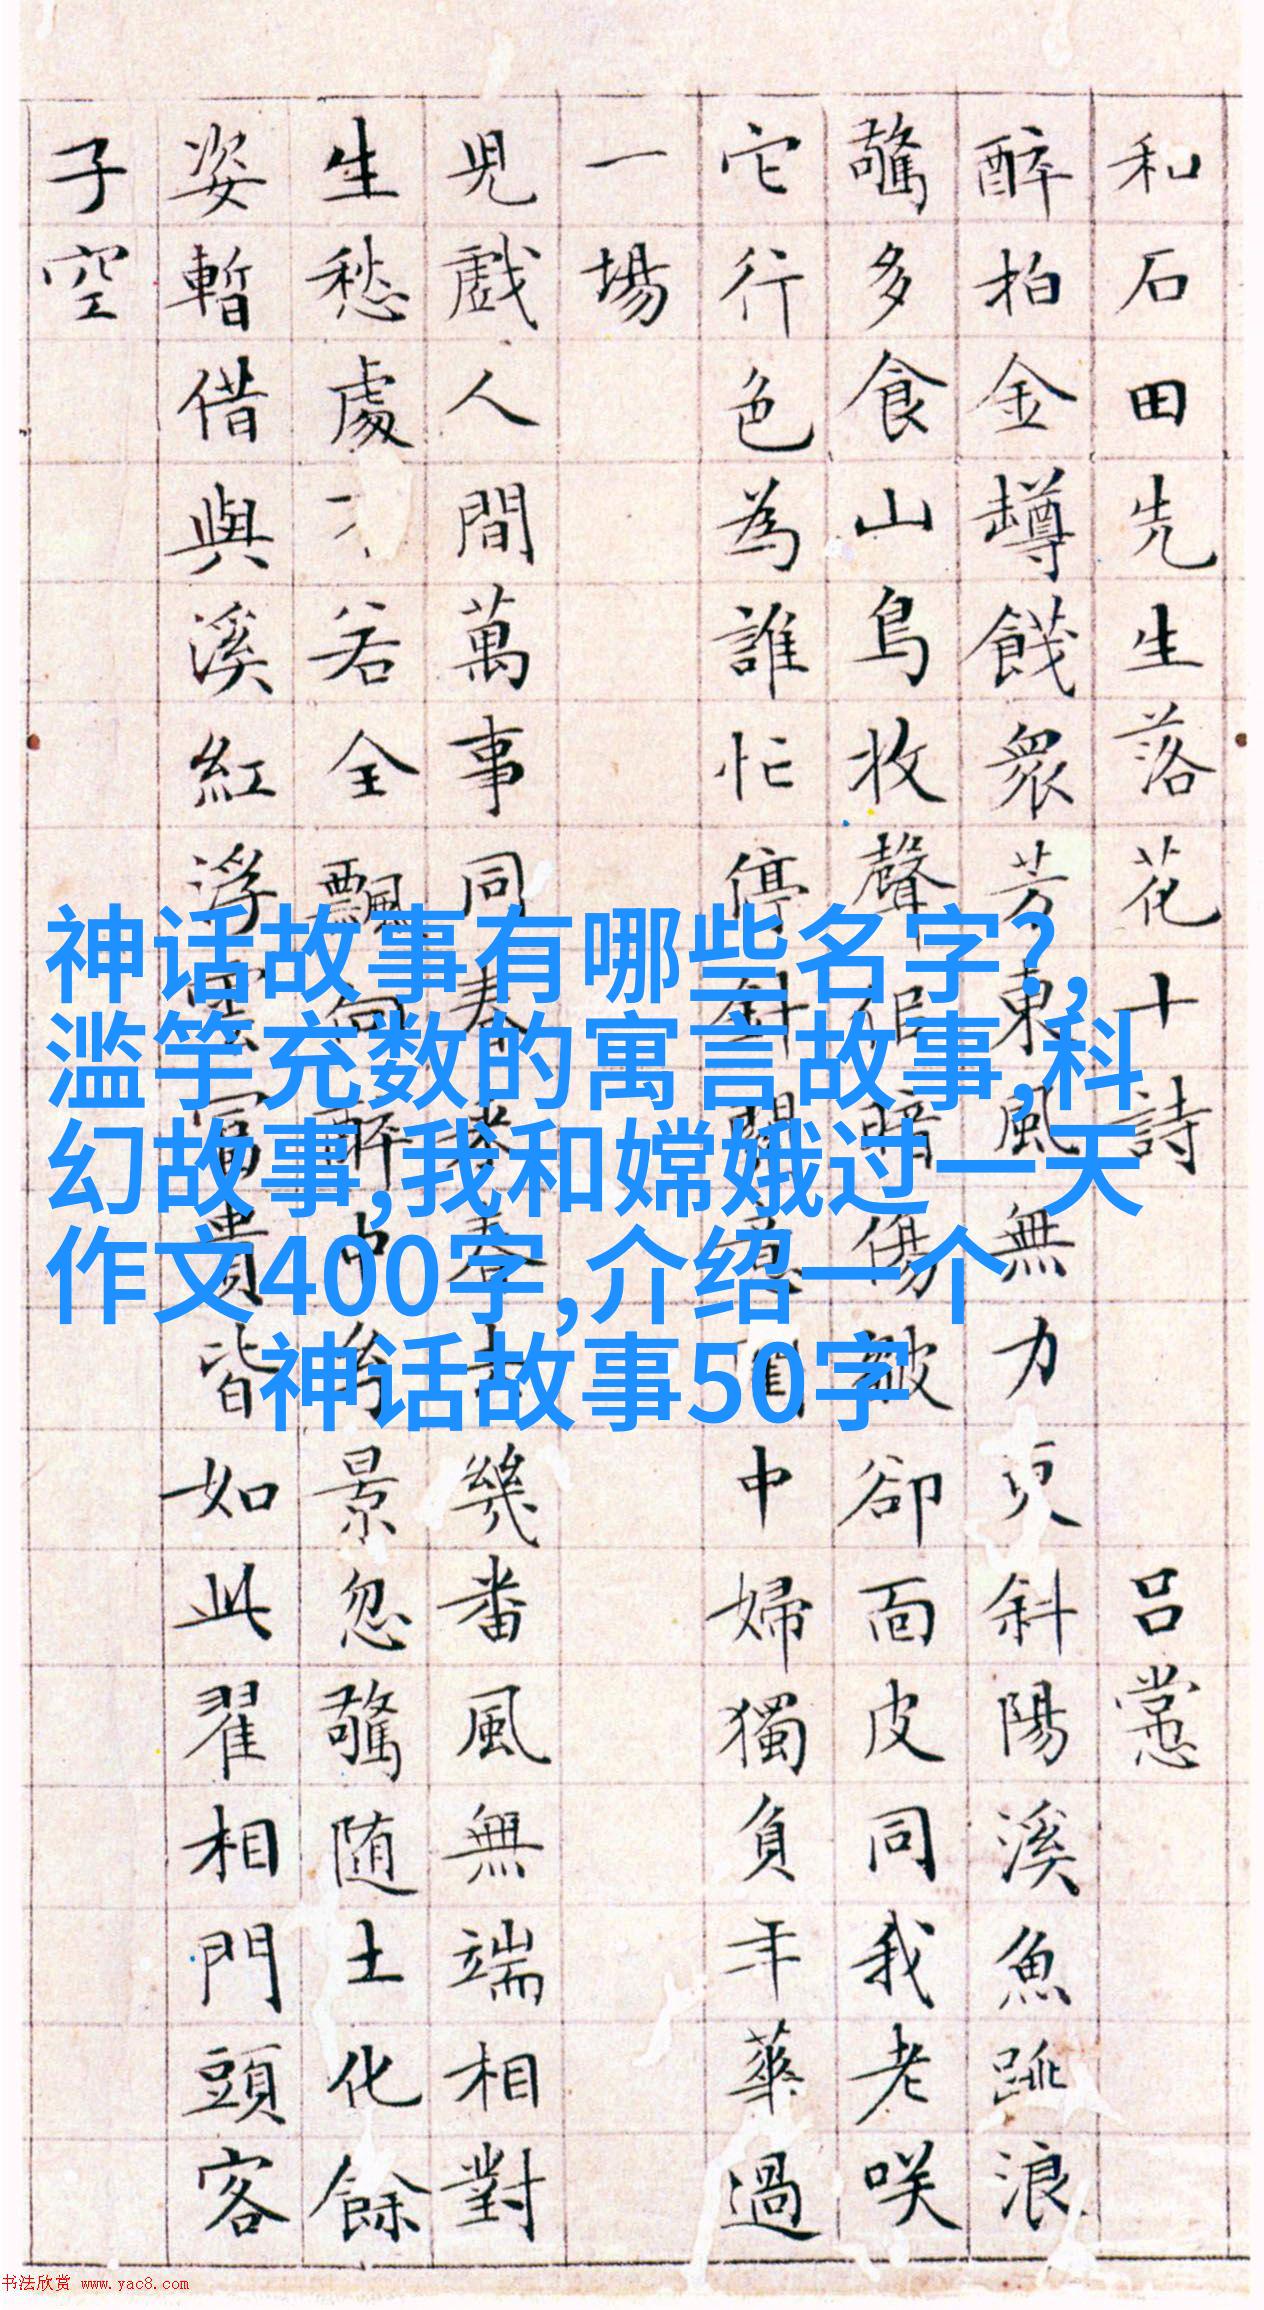 和石田先生落花十詩 吕㦂
醉拍金罇餞衆芳東風無力更斜陽溪魚跳浪
驚多食山鳥收聲暗傷皺卻面皮同我老咲
它行色為誰忙停針中婦獨負年華過
一場
兒戲人間萬事同春老春去幾番風無端相對
生愁處不若全飄向醉中景忽驚随土化餘
姿暫借與溪紅浮雲富貴皆如此翟相門頭客
子空
神话故事有哪些名字?,
滥竽充数的寓言故事,科
幻故事,我和嫦娥过一天
作文400字,介绍一个
神话故事50字
书法欣赏 www.yac8.com